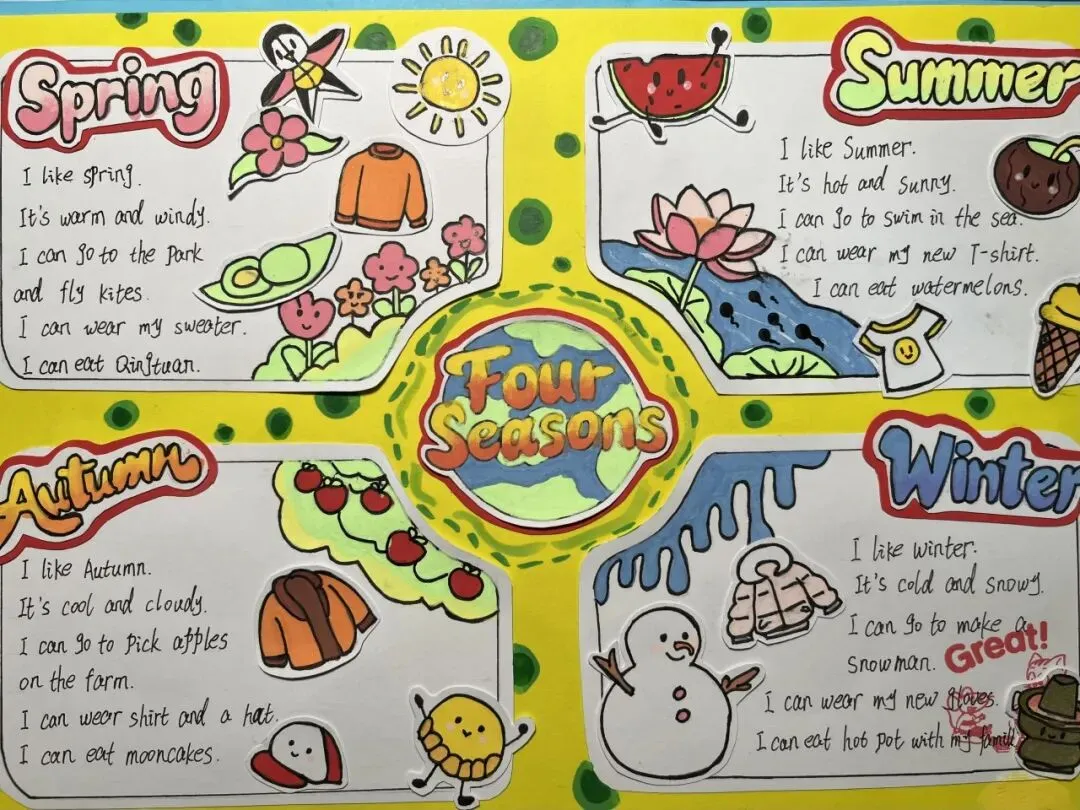 Spring
I like spring.
It's warm and windy.
I can go to the park
and fly kites.
I can wear my sweater.
I can eat Qingtuan.
Summer
I like Summer.
It's hot and sunny.
I can go to swim in the sea.
I can wear my new T-shirt.
I can eat watermelons.
Four
Seasons
Autumn
I like Autumn.
It's cool and cloudy.
I can go to pick apples
on the farm.
I can wear shirt and a hat.
I can eat mooncakes.
Winter
I like winter.
It's cold and snowy.
I can go to make a
snowman.
Great!
I can wear my new gloves.
I can eat hot pot with my family